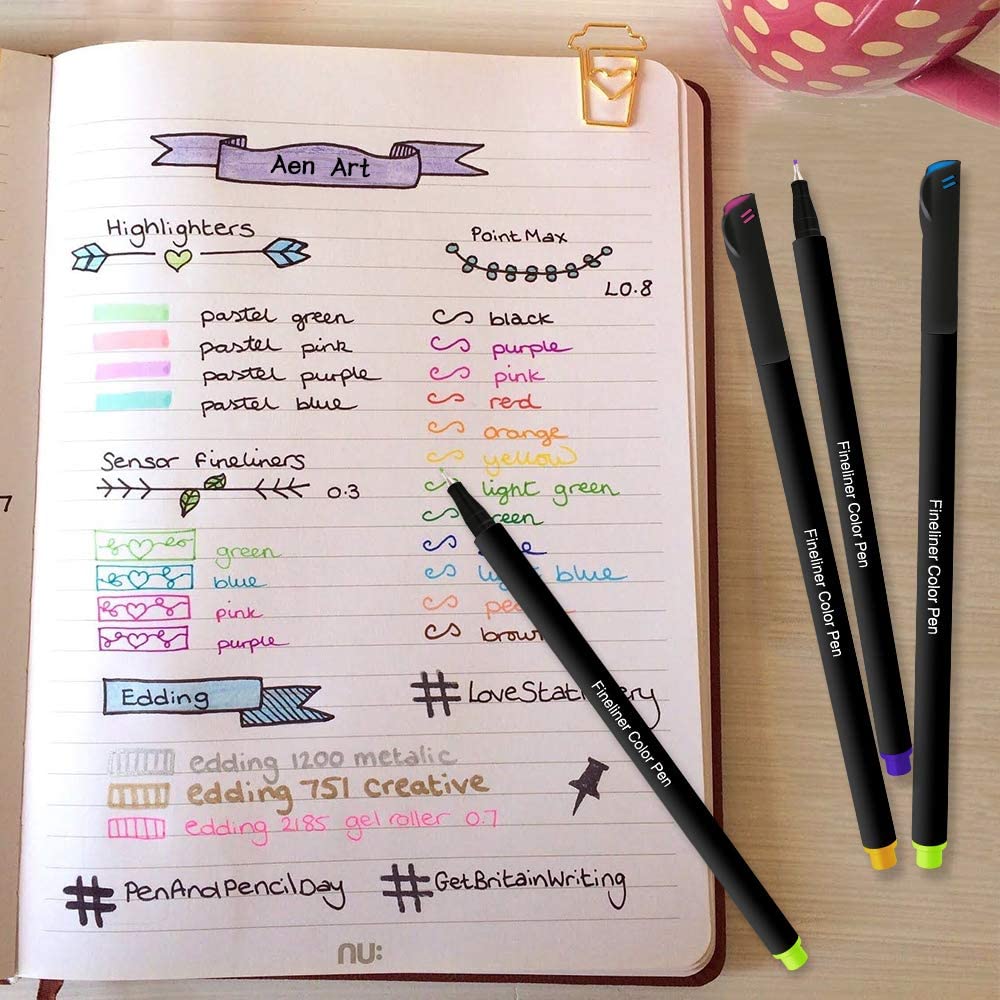 Aen Art
Highlighters
pastel green
pastel pink
pastel purple
pastel blue
Sensor fineliners
0.3
green
blue
pink
purple
Edding
edding 1200 metalic
edding 751 creative
edding 2185 gel roller 0.7
#PenAndPencilDay
Point Max
L0.8
black
purple
pink
red
orange
yellow
light green
blue
brown
#GetBritainWriting
nu:
Fineliner Color Pen
Fineliner Color Pen
Fineliner Color Pen
Fineliner Color Pen
7